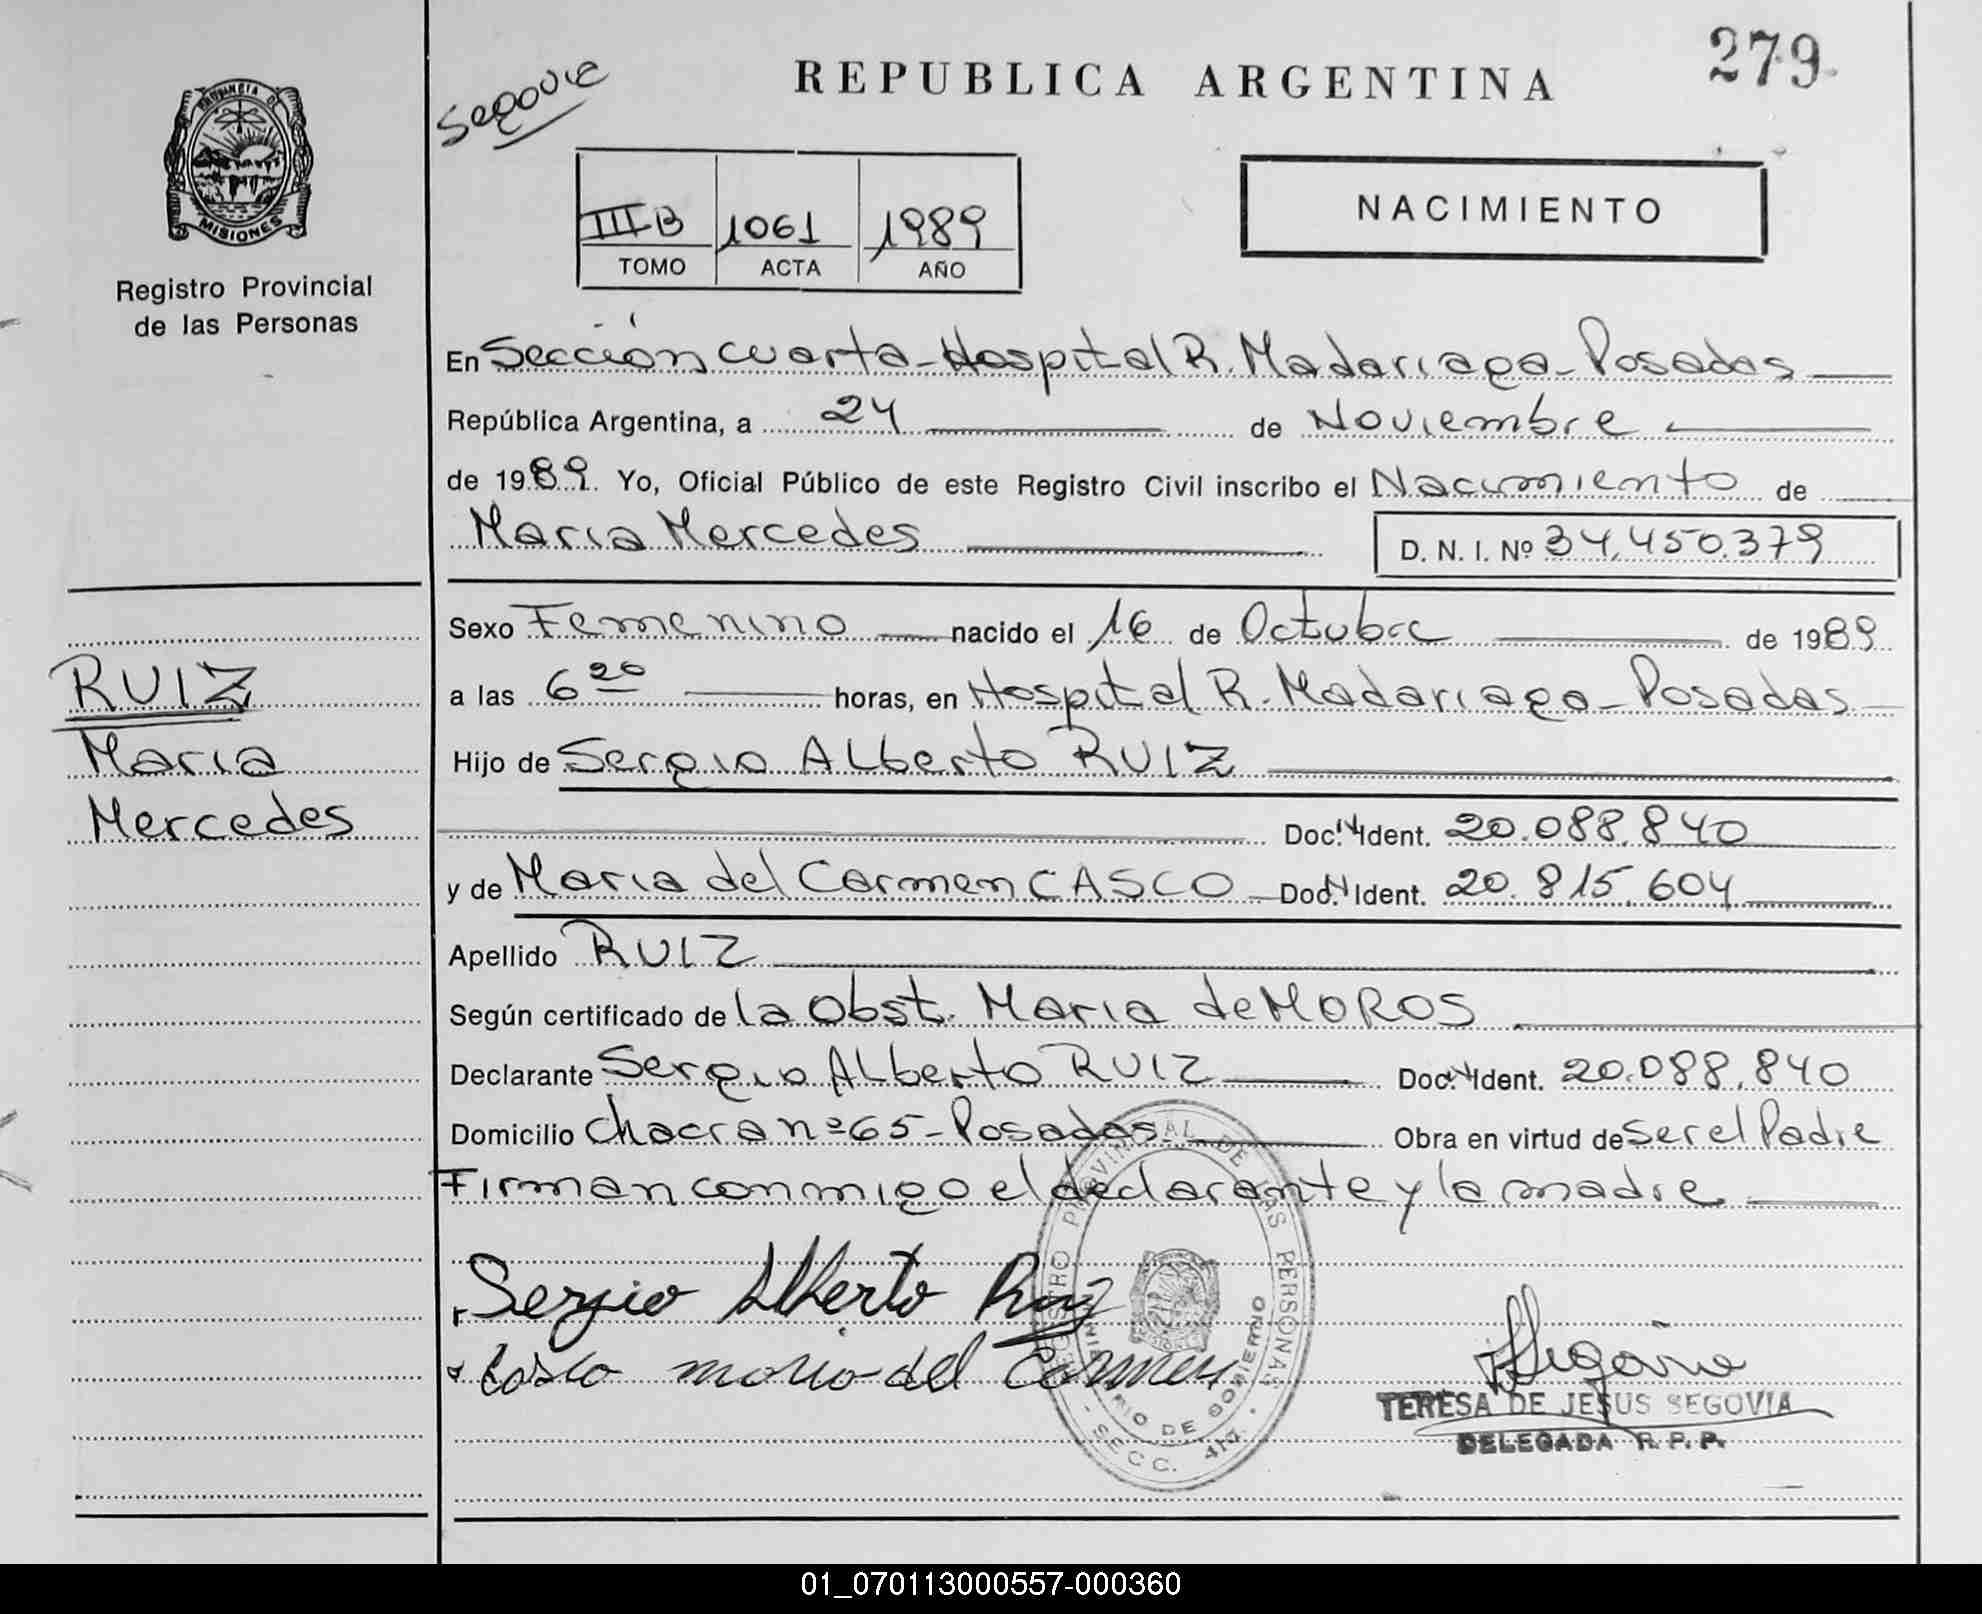 279
REPUBLICA ARGENTINA
Segovia
PROVINCIA DE
MISIONES
Registro Provincial
de las Personas
III B 1061 1989
TOMO ACTA AÑO
NACIMIENTO
En Sección Cuarta - Hospital R. Madariaga - Posadas
República Argentina, a 24 de Noviembre
de 1989. Yo, Oficial Público de este Registro Civil inscribo el Nacimiento de
Maria Mercedes D. N. I. Nº 34.450.379
Sexo Femenino nacido el 16 de Octubre de 1989
RUIZ
Maria
Mercedes
a las 6 20 horas, en Hospital R. Madariaga - Posadas
Hijo de Sergio ALberto RUIZ
Doc. N Ident. 20.088.840
y de Maria del Carmen CASCO Doc. N Ident. 20.815.604
Apellido RUIZ
Según certificado de la Obst. Maria de MOROS
Declarante Sergio ALberto RUIZ Doc. N Ident. 20.088.840
Domicilio Chacra nº 65 - Posadas Obra en virtud de ser el Padre
Firman conmigo el declarante y la madre
Sergio Alberto Ruiz
Casco maria del Carmen
REGISTRO PROVINCIAL DE LAS PERSONAS
MINISTERIO DE GOBIERNO
- SECC. 4ta. -
Segovia
TERESA DE JESUS SEGOVIA
DELEGADA R. P. P.
01_070113000557-000360